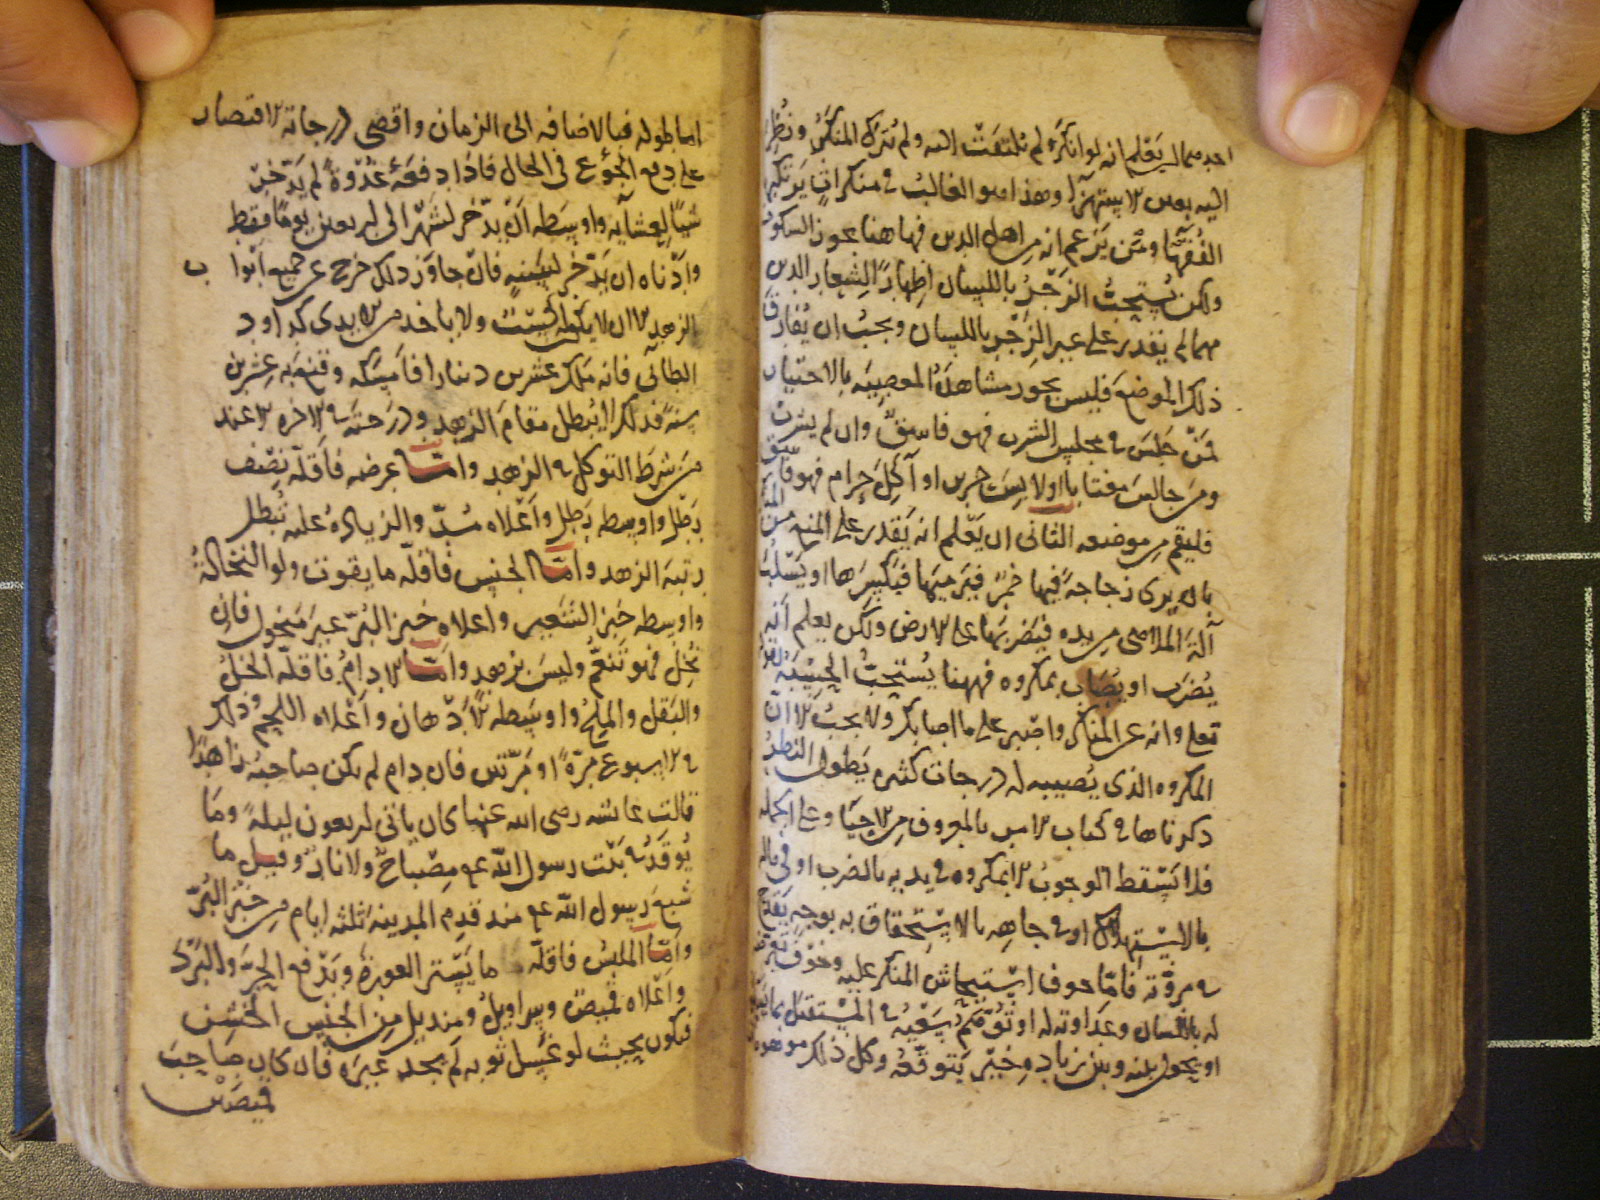 احدهما ان يعلم انه لو انكره لم يلتفت اليه ولم يترك المنكر ونظر
اليه بعين الاستهزا وهذا هو الغالب في منكرات يرتكبها
الفقها ومن يزعم انه من اهل الدين فهاهنا يجوز السكوت
ولكن يستحب الزجر باللسان اظهارا لشعار الدين
مهما لم يقدر على غير الزجر باللسان ويجب ان يفارق
ذلك الموضع فليس يجوز مشاهدة المعصية بالاختيار
فمن جلس في مجلس الشرب فهو فاسق وان لم يشرب
ومن جالس مغتابا او لابس حرير او آكل حرام فهو فاسق
فليقم من موضعه الثاني ان يعلم انه يقدر على المنع من المنكر
بان يرى زجاجة فيها خمر فيرميها فيكسرها او يسلب
آلة الملاهي من يده فيضربها على الارض ولكن يعلم انه
يضرب او يصاب بمكروه فههنا يستحب الحسبة لقوله
تعلى وانه عن المنكر واصبر على ما اصابك ولا يجب الا ان
المكروه الذي يصيبه له درجات كثيره يطول النظر
ذكرناها في كتاب الامر بالمعروف من الاحيا وعلى الجمله
فلا يسقط الوجوب الا بمكروه في بدنه بالضرب او في ماله
بالاستهلاك او في جاهه بالاستحقاق به بوجه يقدح
في مروته فاما خوف استيحاش المنكر عليه وخوف تعرضه
له باللسان وعداوته له او توهم سعيه في المستقبل بما
او يحول بينه وبين زياده خير يتوقعه وكل ذلك موهوم
اما طوله فبالاضافه الى الزمان واقصى درجاته الاقتصار
على دفع الجوع في الحال فاذا دفعه غدوة لم يدخر
شيا لعشايه واوسطه ان يدخر لشهر الى اربعين يوما فقط
وادناه ان يدخر لسنه فان جاوز ذلك خرج عن جميع ابوا ب
الزهد الا ان لا يكون له كسب ولا ياخذ من الايدي كداود
الطائي فانه ملك عشرين دينارا فامسكه وقنع به عشرين
سنة فذلك لا يبطل مقام الزهد ودرجته في الاخره الا عند
من شرط التوكل في الزهد واما عرضه فاقله نصف
رطل واوسطه رطل واعلاه مد والزيادة عليه تبطل
رتبة الزهد واما الجنس فاقله ما يقوت ولو النخالة
واوسطه خبز الشعير واعلاه خبز البر غير منخول فان
نخل فهو تنعم وليس بزهد واما الادام فاقله الخل
والبقل والملح واوسطه الادهان واعلاه اللحم وذلك
في الاسبوع مرة او مرتين فان دام لم يكن صاحبه زاهدا
قالت عائشه رضى الله عنها كان ياتي اربعون ليلة وما
يوقد في بيت رسول الله عم مصباح ولا نار وقيل ما
شبع رسول الله عم منذ قدم المدينه ثلثه ايام من خبز البر
واما الملبس فاقله ما يستر العورة ويدفع الحر والبرد
واعلاه قميص وسراويل ومنديل من الجنس الخشن
فيكون بحيث لو غسل ثوبه لم يجد غيره فان كان صاحب
قميصين